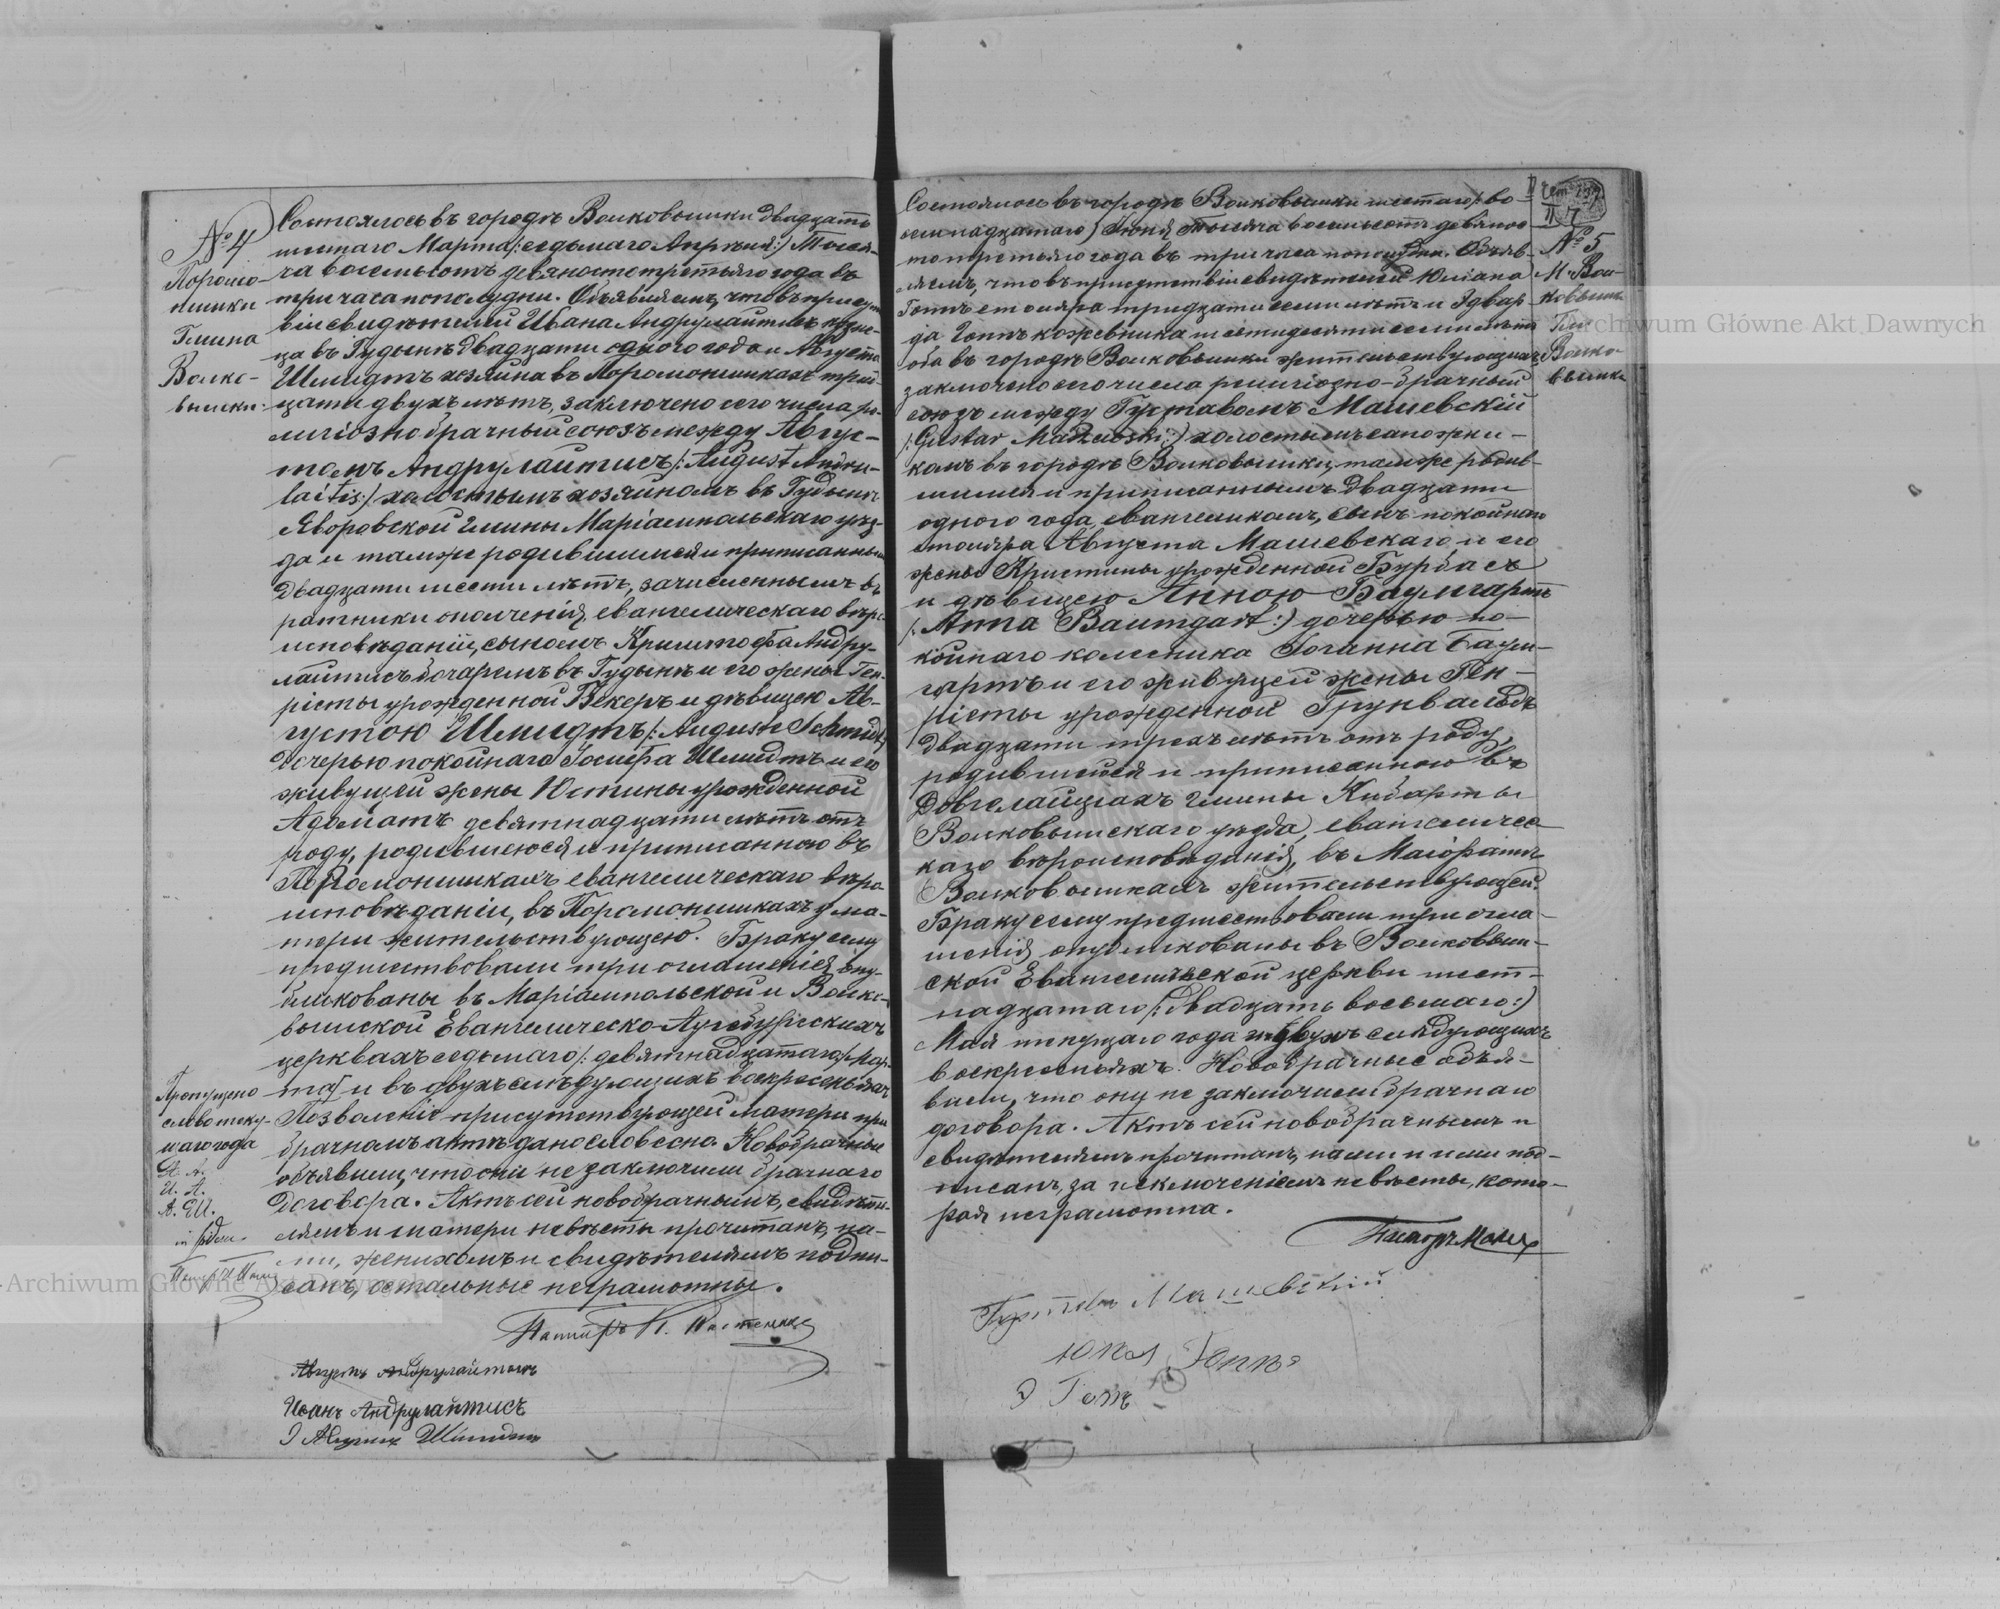 № 4
Поромо-
нишки
Гмина
Волко-
вышки:
Состоялось въ городѣ Волковышки двадцать
шестаго Марта /:седьмаго Апрѣля:/ Тыся-
ча восемьсотъ девяносто третьяго года въ
три часа пополудни. Объявляемъ, что въ присут
віи свидѣтелей Ивана Андрулайтисъ кузне-
ца въ Гудынѣ двадцати одного года и Августа
Шмидтъ хозяина въ Поромонишкахъ трид-
цати двухъ лѣтъ, заключено сего числа ре-
лигіозно брачный союзъ между Авгус-
томъ Андрулайтисъ /:August Andru-
laitis:/ холостымъ хозяйномъ въ Гудынѣ
Яворовской гмины Маріампольскаго уѣз-
да и тамже родившимся и приписаннымъ
двадцати шести лѣтъ, зачисленнымъ въ
ратники ополченія, евангелическаго вѣро-
исповѣданій, сыномъ Криштофа Андру-
лайтисъ бочаремъ въ Гудынѣ и его жены Ген-
рієты урожденной Бекеръ и дѣвицею Ав-
густою Шмидтъ /:Auguste Schmidt:/
дочерью покойнаго Іосифа Шмидтъ и его
живущей жены Юстины урожденной
Адоматъ девятнадцати лѣтъ отъ
роду, родившеюся и приписанною въ
Поромонишкахъ евангелическаго вѣро-
исповѣданіи, въ Поромонишкахъ у ма-
тери жительствующею. Браку сему
предшествовали три оглашенія, опу-
бликованы въ Маріампольской и Волко-
вышской Евангелическо-Аугсбургскихъ
церквахъ седьмаго /: девятнадцатаго:/ Мар-
та[ и въ двухъ слѣдующихъ воскресеньяхъ
Позволеніе присутствующей матери при
брачномъ актѣ дано словесно. Новобрачные
объявили, что они не заключили брачнаго
договора. Актъ сей новобрачнымъ, свидѣте-
лямъ и матери невѣсты прочитанъ, на-
ми, женихомъ и свидѣтелямъ подпи-
санъ, остальные неграмотны.
Пропущено
слово теку-
щаго года
А. А.
И. А.
А. Ш.
Пасторъ К.
Августъ Андрулайтисъ
Иванъ Андрулайтисъ
Августъ Шмидтъ
№ 5
М. Вол-
ковышки
Гми
Волко-
вышки
Состоялось въ городѣ Волковышки шестаго /:во-
семнадцатаго:/ Іюня Тысяча восемьсотъ девянос
то третьяго года въ три часа пополудни. Объяв-
ляемъ, что въ присутствіи свидѣтелей Юліана
Гоппъ столяра тридцати семи лѣтъ и Эдвар
да Готъ кожевника шестидесяти семи лѣтъ
оба въ городѣ Волковышки жительствующихъ,
заключено сего числа религіозно-брачный
союзъ между Густавомъ Машевскій
/:Gustav :/ холостымъ сапожни-
комъ въ городѣ Волковышки, тамже родив-
шимся и приписаннымъ двадцати
одного года, евангеликомъ, сынъ покойнаго
столяра Августа Машевскаго и его
жены Кристины урожденной Бурбасъ
и дѣвицею Анною Баумгартъ
/:Anna Baumgart:/ дочерью по-
койнаго колесника Іоганна Баум-
гартъ и его живущей жены Ген-
рієты урожденной Грунвальдъ
двадцати трехъ лѣтъ отъ роду,
родившейся и приписанною въ
Довгелайцяхъ гмины Кибарты
Волковышскаго уѣзда, евангеличес-
каго вѣроисповѣданія, въ Маіоратѣ
Волковышкахъ жительствующей.
Браку сему предшествовали три огла-
шенія опубликованы въ Волковыш-
ской Евангелической церкви шест-
надцатаго /:двадцать восьмаго:/
Мая текущаго года и двухъ слѣдующихъ
воскресеньяхъ. Новобрачные объя-
вили, что они не заключили брачнаго
договора. Актъ сей новобрачнымъ и
свидѣтелямъ прочитанъ, нами и ими под-
писанъ, за исключеніемъ невѣсты, кото-
рая неграмотна.
Пасторъ
Густавъ Машевскій
Юлья Гоппъ
Э Готъ
Archiwum Główne Akt Dawnych
Archiwum Główne Akt Dawnych